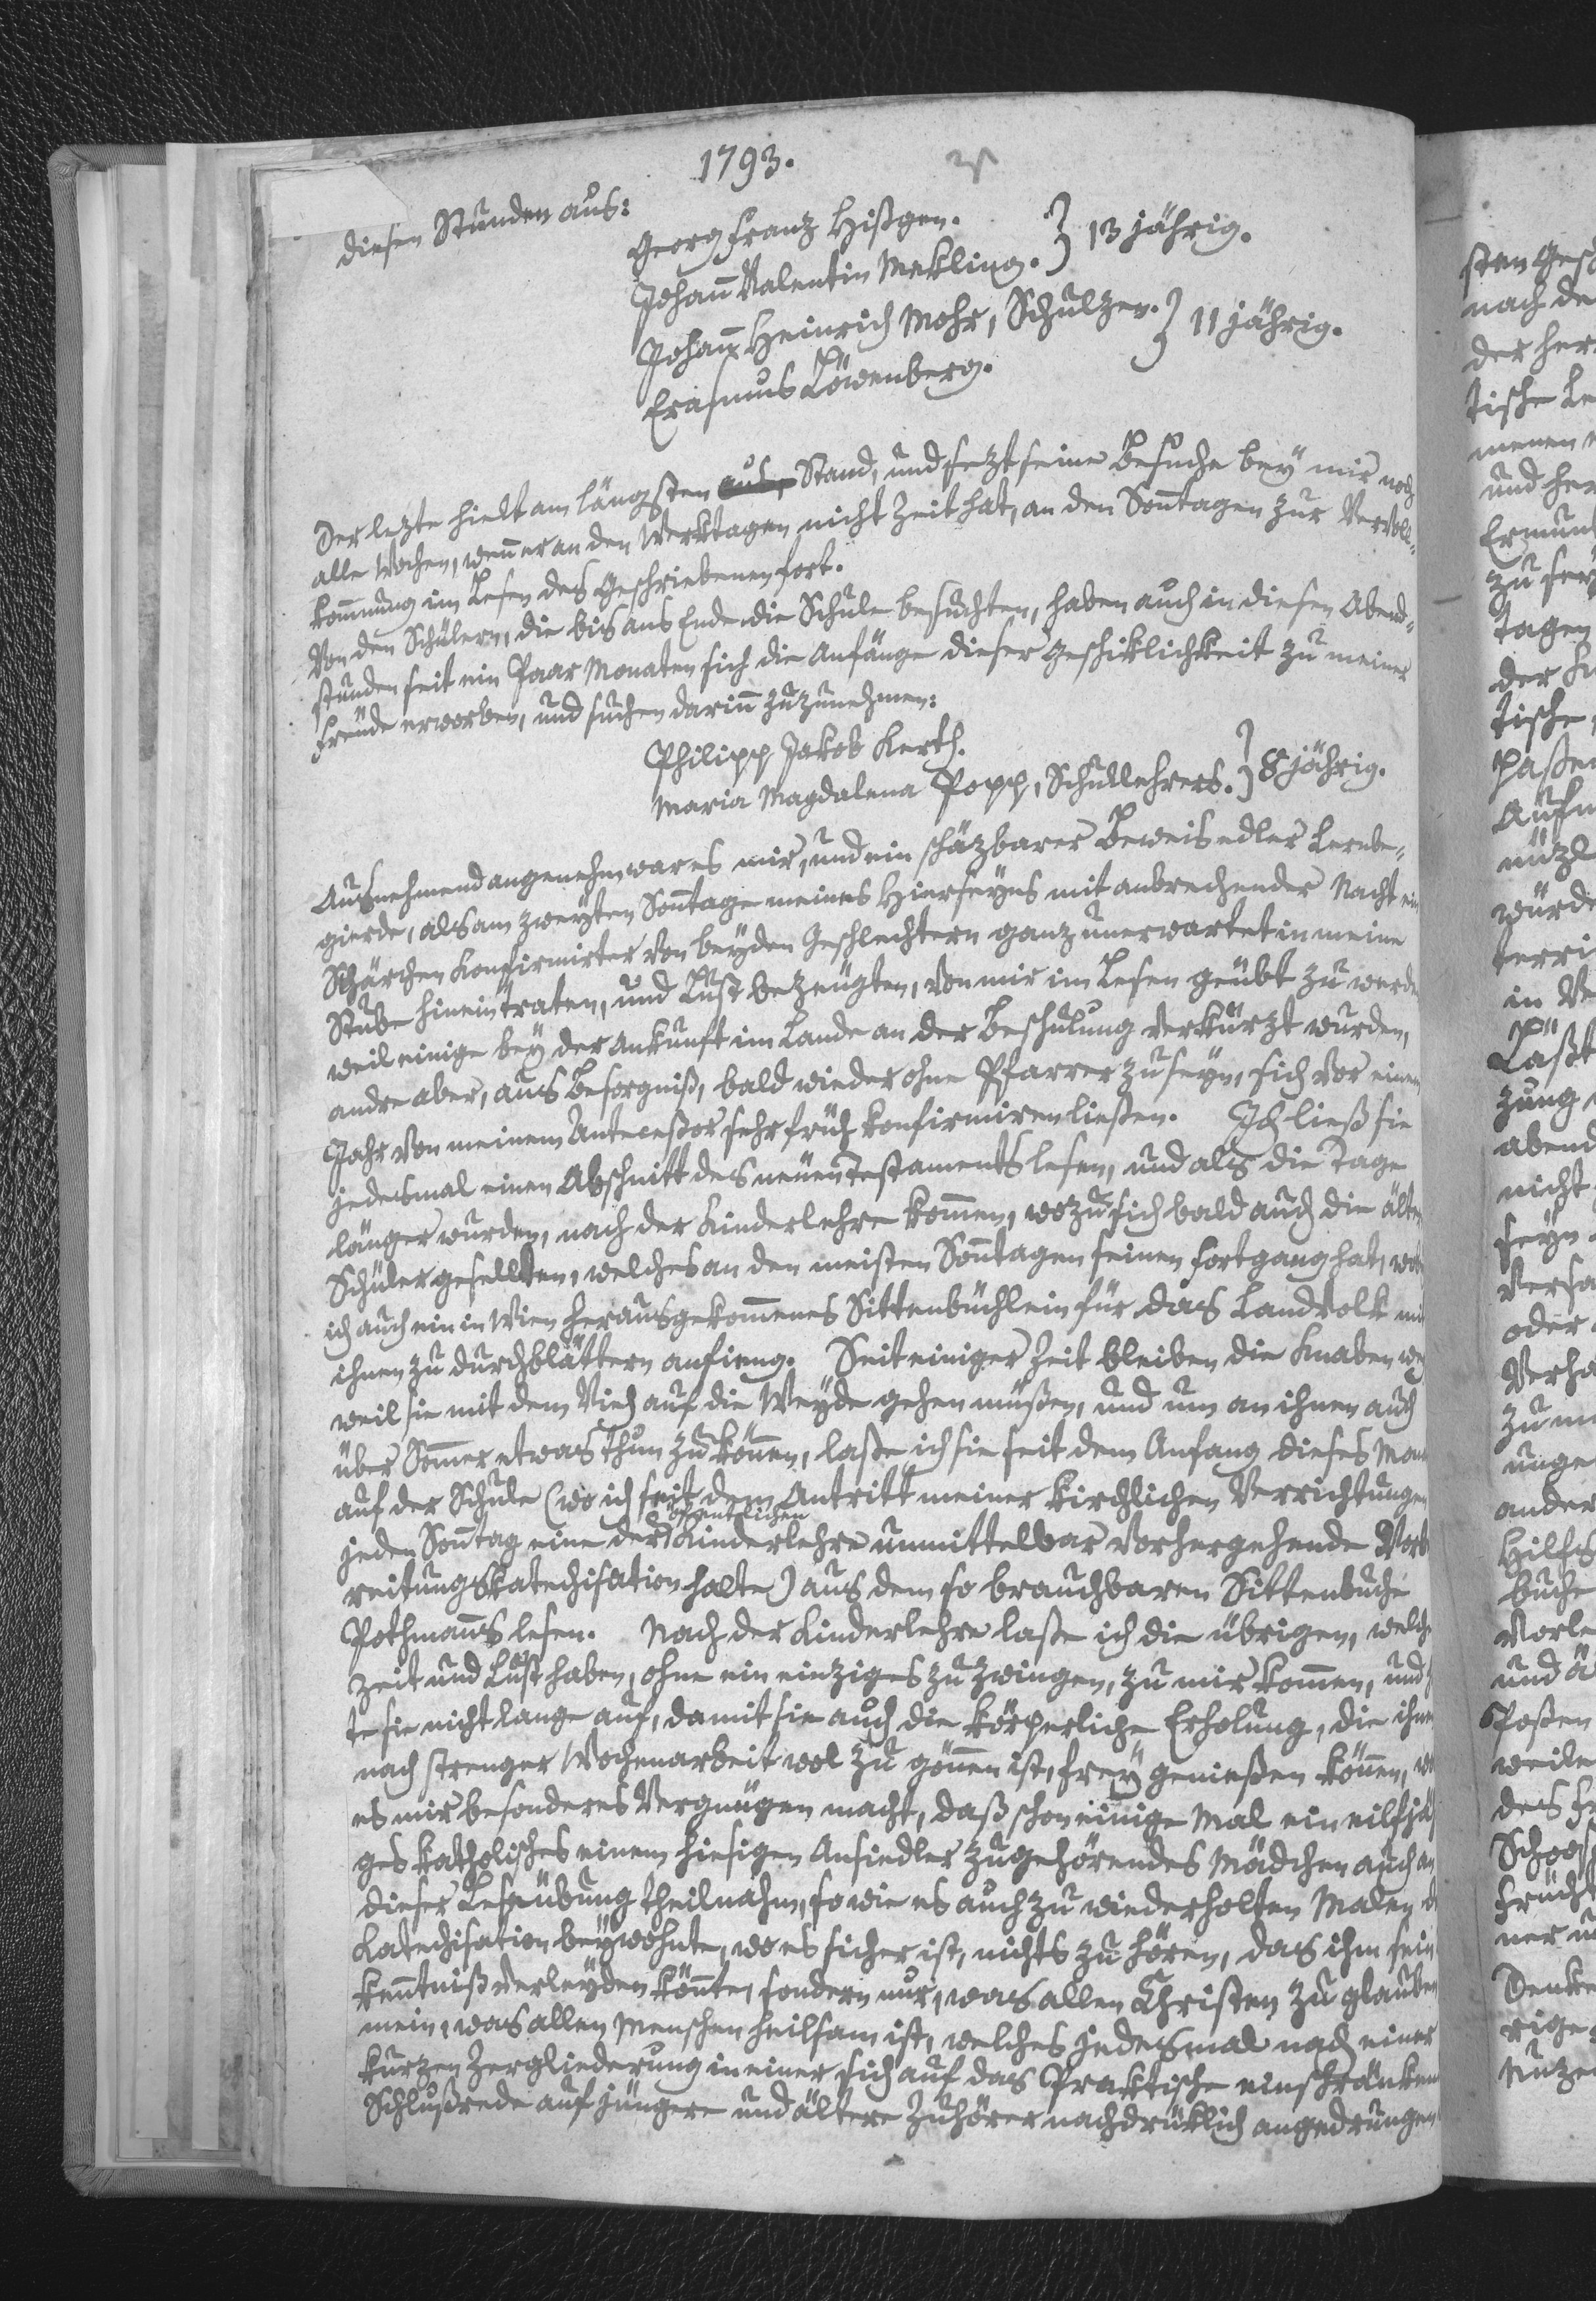 1793.
diesen Stunden aus:
Georg Franz Hißgen.
Johañ Valentin Mekling. } 13 jährig.
Johañ Heinrich Mohr, Schulzen.
Erasmus Löwenberg. } 11 jährig.
Der lezte hielt am längsten aus, Stand, und sezt seine Besuche bey mir noch
alle Wochen, weñ er an den Werktagen nicht Zeit hat, an den Soñtagen zur Vervoll-
kom̄nung im Lesen des Geschriebenen fort.
Von den Schülern, die bis ans Ende die Schule besuchten, haben auch in diesen Abend-
stunden seit ein Paar Monaten sich die Anfänge dieser Geschiklichkeit zu meiner
Freude erworben, und suchen dariñ zuzunehmen:
Philipp Jakob Kerth.
Maria Magdalena Popp, Schullehrers. } 8 jährig.
Ausnehmend angenehm war es mir, und ein schäzbarer Beweis edler Lernbe-
gierde, als am zweyten Soñtage meines Hierseyns mit anbrechender Nacht ein
Schärchen Konfirmirter von beyden Geschlechtern ganz unerwartet in meine
Stube hineintraten, und Lust bezeugten, von mir im Lesen geübt zu werde
weil einige bey der Ankunft im Lande an der Beschulung verkürzt wurden,
andre aber, aus Besorgniß, bald wieder ohne Pfarrer zu seyn, sich vor einem
Jahr von meinem Anteceßor sehr früh konfirmiren ließen. Ich ließ sie
jedesmal einen Abschnitt des neuen Testaments lesen, und als die Tage
länger wurden, nach der Kinderlehre kom̄en, wozu sich bald auch die ältern
Schüler gesellten, welches an den meisten Soñtagen seinen Fortgang hat, wo
ich auch ein in Wien herausgekom̄enes Sittenbüchlein für das Landvolk mit
ihnen zu durchblättern anfieng. Seit einiger Zeit bleiben die Knaben weg
weil sie mit dem Vieh auf die Weyde gehen müßen, und um an ihnen auch
über Som̄er etwas thun zu köñen, laße ich sie seit dem Anfang dieses Mon
auf der Schule (wo ich seit dem Antritt meiner kirchlichen Verrichtungen
jeden Soñtag eine der öffentlichen Kinderlehre unmittelbar vorhergehende Vorbe
reitungskatechisation halte) aus dem so brauchbaren Sittenbuche
Pothmañs lesen. Nach der Kinderlehre laße ich die übrigen, welche
Zeit und Lust haben, ohne ein einziges zu zwingen, zu mir kom̄en, und h
te sie nicht lange auf, damit sie auch die körperliche Erholung, die ihnen
nach strenger Wochenarbeit wol zu göñen ist, frey genießen köñen, wo
es mir besonderes Vergnügen macht, daß schon einige Mal ein eilfjäh
ges katholisches einem hiesigen Ansiedler zugehörendes Mädchen auch an
dieser Leseübung theilnahm, so wie es auch zu wiederholten Malen d
Katechisation beywohnte, wo es sicher ist, nichts zu hören, das ihm sein
keñtniß verleyden köñte, sondern nur, was allen Christen zu glauben
mein, was allen Menschen heilsam ist, welches jedesmal nach einer
kurzen Zergliederung in einer sich auf das Praktische einschränken
Schlußrede auf jüngere und ältere Zuhörer nachdrüklich angedrungen
sten Gesch
nach de
der her
tische Le
menen
und her
Ermun
zu sey
Tagen
der K
tische
paßen
Aufm
nüzl
würde
terri
in Ve
Läßt
zung
abend
nicht
seyn
Versa
oder
Verha
zu m
unge
ander
Hilfs
buche
Vorle
und ä
Poßen
weile
des
Schoos
Frücht
ner u
Denke
rige
Nuzen